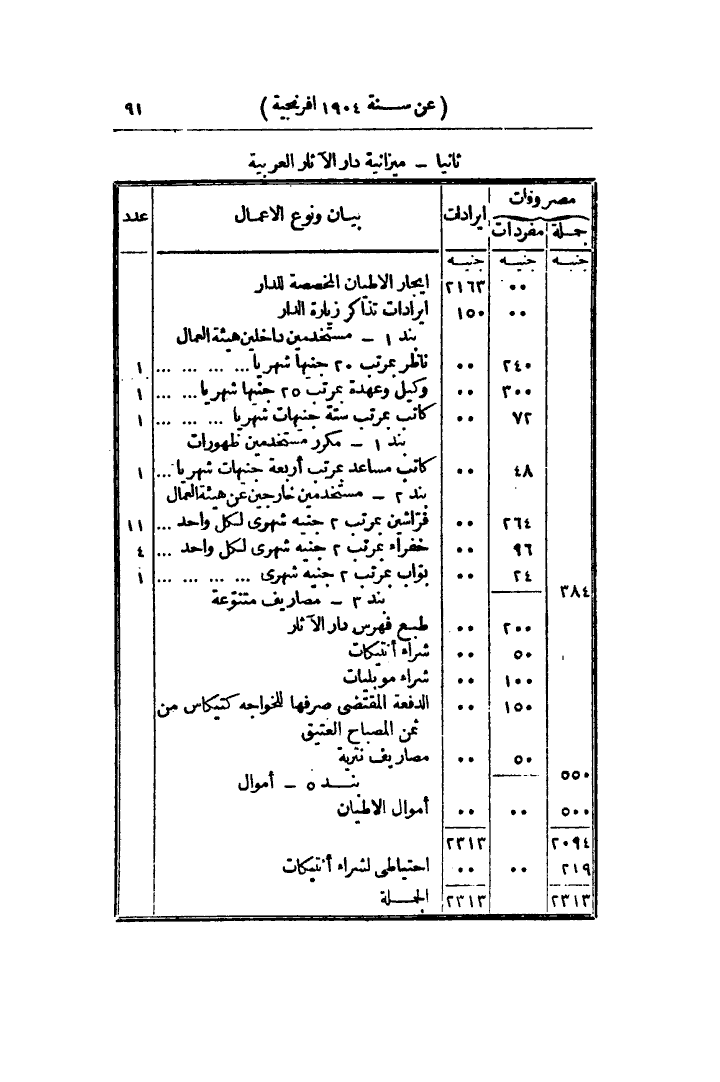 (عن سنة ١٩٠٤ افرنجية) ٩١
ثانيا – ميزانية دار الآثار العربية
مصروفات ايرادات بيان ونوع الاعمال عدد
جملة مفردات
جنيه جنيه جنيه
٠٠ ٢١٦٣ ايجار الاطيان المخصصة للدار
٠٠ ١٥٠ ايرادات تذاكر زيارة الدار
بند ١ – مستخدمين داخلين هيئة العمال
٢٤٠ ٠٠ ناظر بمرتب ٢٠ جنيها شهريا ... ... ... ... ١
٣٠٠ ٠٠ وكيل وعهدة بمرتب ٢٥ جنيها شهريا ... ... ١
٧٢ ٠٠ كاتب بمرتب ستة جنيهات شهريا ... ... ... ١
بند ١ – مكرر مستخدمين ظهورات
٤٨ ٠٠ كاتب مساعد بمرتب أربعة جنيهات شهريا ... ١
بند ٢ – مستخدمين خارجين عن هيئة العمال
٢٦٤ ٠٠ فراشين بمرتب ٢ جنيه شهرى لكل واحد ... ١١
٩٦ ٠٠ خفراء بمرتب ٢ جنيه شهرى لكل واحد ... ٤
٢٤ ٠٠ بواب بمرتب ٢ جنيه شهرى ... ... ... ... ١
٣٨٤
بند ٣ – مصاريف متنوعة
٢٠٠ ٠٠ طبع فهرس دار الآثار
٥٠ ٠٠ شراء أنتيكات
١٠٠ ٠٠ شراء موبليات
١٥٠ ٠٠ الدفعة المقتضى صرفها للخواجه كتيكاس من
ثمن المصباح العتيق
٥٠ ٠٠ مصاريف نثرية
٥٥٠
بند ٥ – أموال
٥٠٠ ٠٠ ٠٠ أموال الاطيان
٢٠٩٤ ٢٣١٣
٢١٩ ٠٠ ٠٠ احتياطى لشراء أنتيكات
٢٣١٣ ٢٣١٣ الجملة